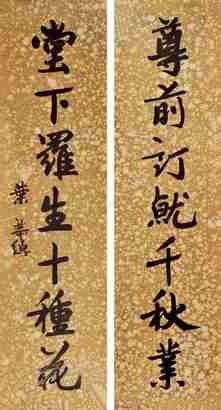 尊前訂就千秋業
堂下羅生十種花
葉恭綽